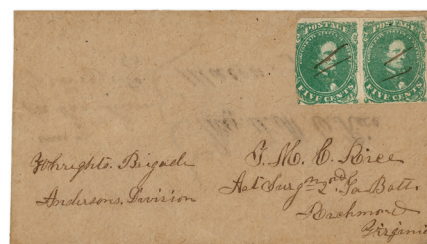 POSTAGE POSTAGE
FIVE CENTS FIVE CENTS
Whrights. Brigade
Andersons. Division
T. M. C. Rice
Act Surgn 2nd Ga Batt.
Richmond
Virginia